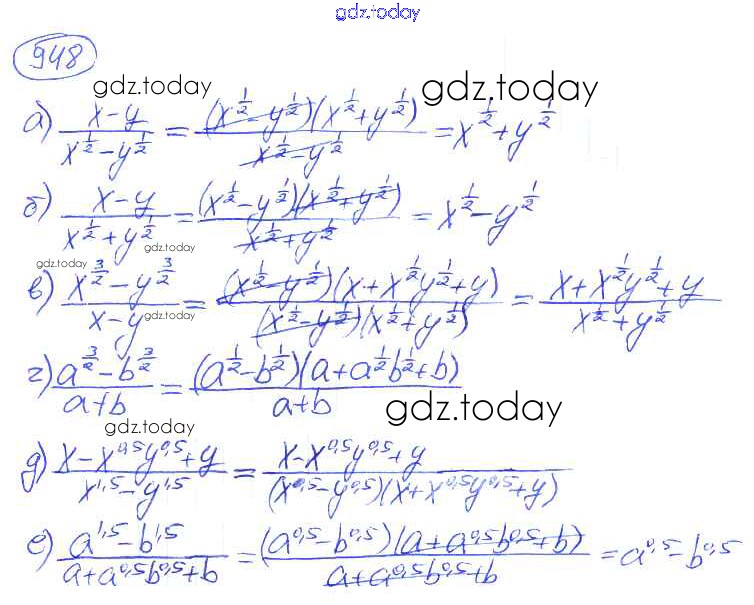 gdz.today
948
gdz.today
gdz.today
а) (x-y)/(x^(1/2)-y^(1/2)) = ((x^(1/2)-y^(1/2))(x^(1/2)+y^(1/2)))/(x^(1/2)-y^(1/2)) = x^(1/2)+y^(1/2)
б) (x-y)/(x^(1/2)+y^(1/2)) = ((x^(1/2)-y^(1/2))(x^(1/2)+y^(1/2)))/(x^(1/2)+y^(1/2)) = x^(1/2)-y^(1/2)
gdz.today
gdz.today
в) (x^(3/2)-y^(3/2))/(x-y) = ((x^(1/2)-y^(1/2))(x+x^(1/2)y^(1/2)+y))/((x^(1/2)-y^(1/2))(x^(1/2)+y^(1/2))) = (x+x^(1/2)y^(1/2)+y)/(x^(1/2)+y^(1/2))
gdz.today
г) (a^(3/2)-b^(3/2))/(a+b) = ((a^(1/2)-b^(1/2))(a+a^(1/2)b^(1/2)+b))/(a+b)
gdz.today
gdz.today
д) (x-x^0,5y^0,5+y)/(x^1,5-y^1,5) = (x-x^0,5y^0,5+y)/((x^0,5-y^0,5)(x+x^0,5y^0,5+y))
е) (a^1,5-b^1,5)/(a+a^0,5b^0,5+b) = ((a^0,5-b^0,5)(a+a^0,5b^0,5+b))/(a+a^0,5b^0,5+b) = a^0,5-b^0,5